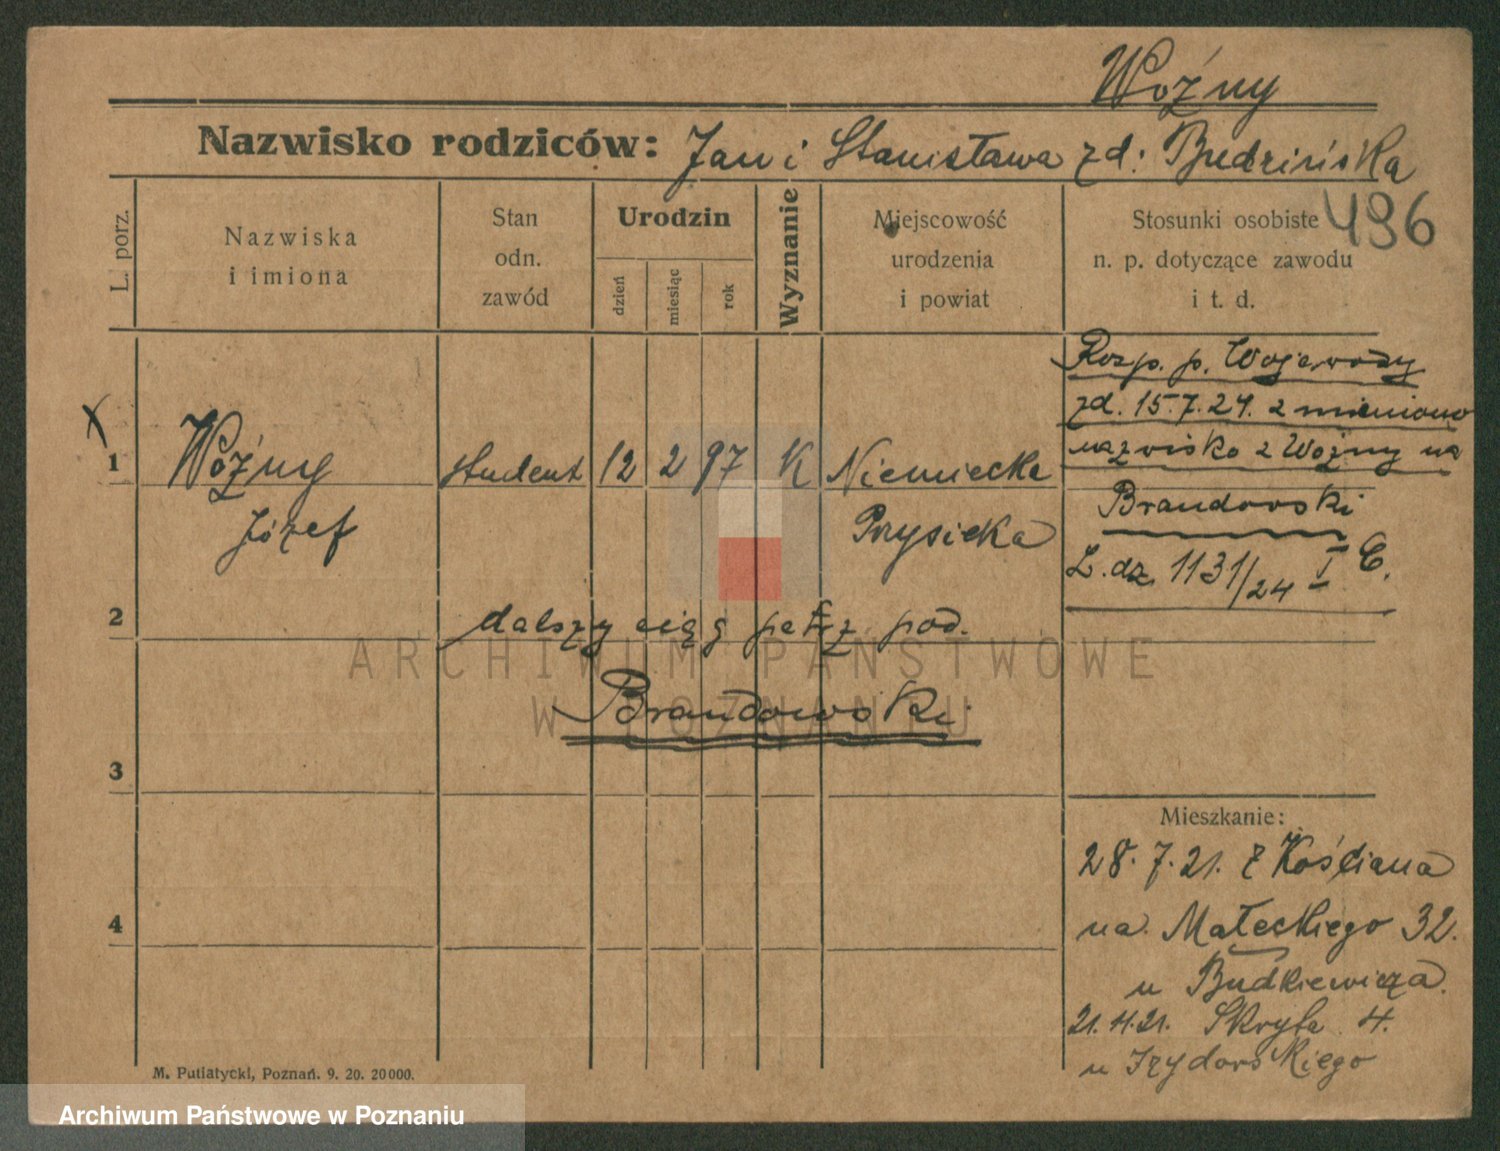 Woźny
Nazwisko rodziców: Jan i Stanisława zd: Budzińska
496
L. porz.
Nazwiska
i imiona
Stan
odn.
zawód
Urodzin
dzień
miesiąc
rok
Wyznanie
Miejscowość
urodzenia
i powiat
Stosunki osobiste
n. p. dotyczące zawodu
i t. d.
x
1
Woźny
Józef
student
12 2 97
K
Niemiecka
Przysieka
Rozp. p. Wojewody
zd. 15.7.24. zmieniono
nazwisko z Woźny na
Brandowski
L. dz. 1131/24 I C.
2
dalszy ciąg patrz pod.
Brandowski
3
4
Mieszkanie:
28.7.21. z Kościana
na Małeckiego 32.
u Budkiewicza.
21. 11. 21. Skryta 4.
u Izydorskiego
M. Putiatycki, Poznań. 9. 20. 20000.
ARCHIWUM PAŃSTWOWE
W POZNANIU
Archiwum Państwowe w Poznaniu